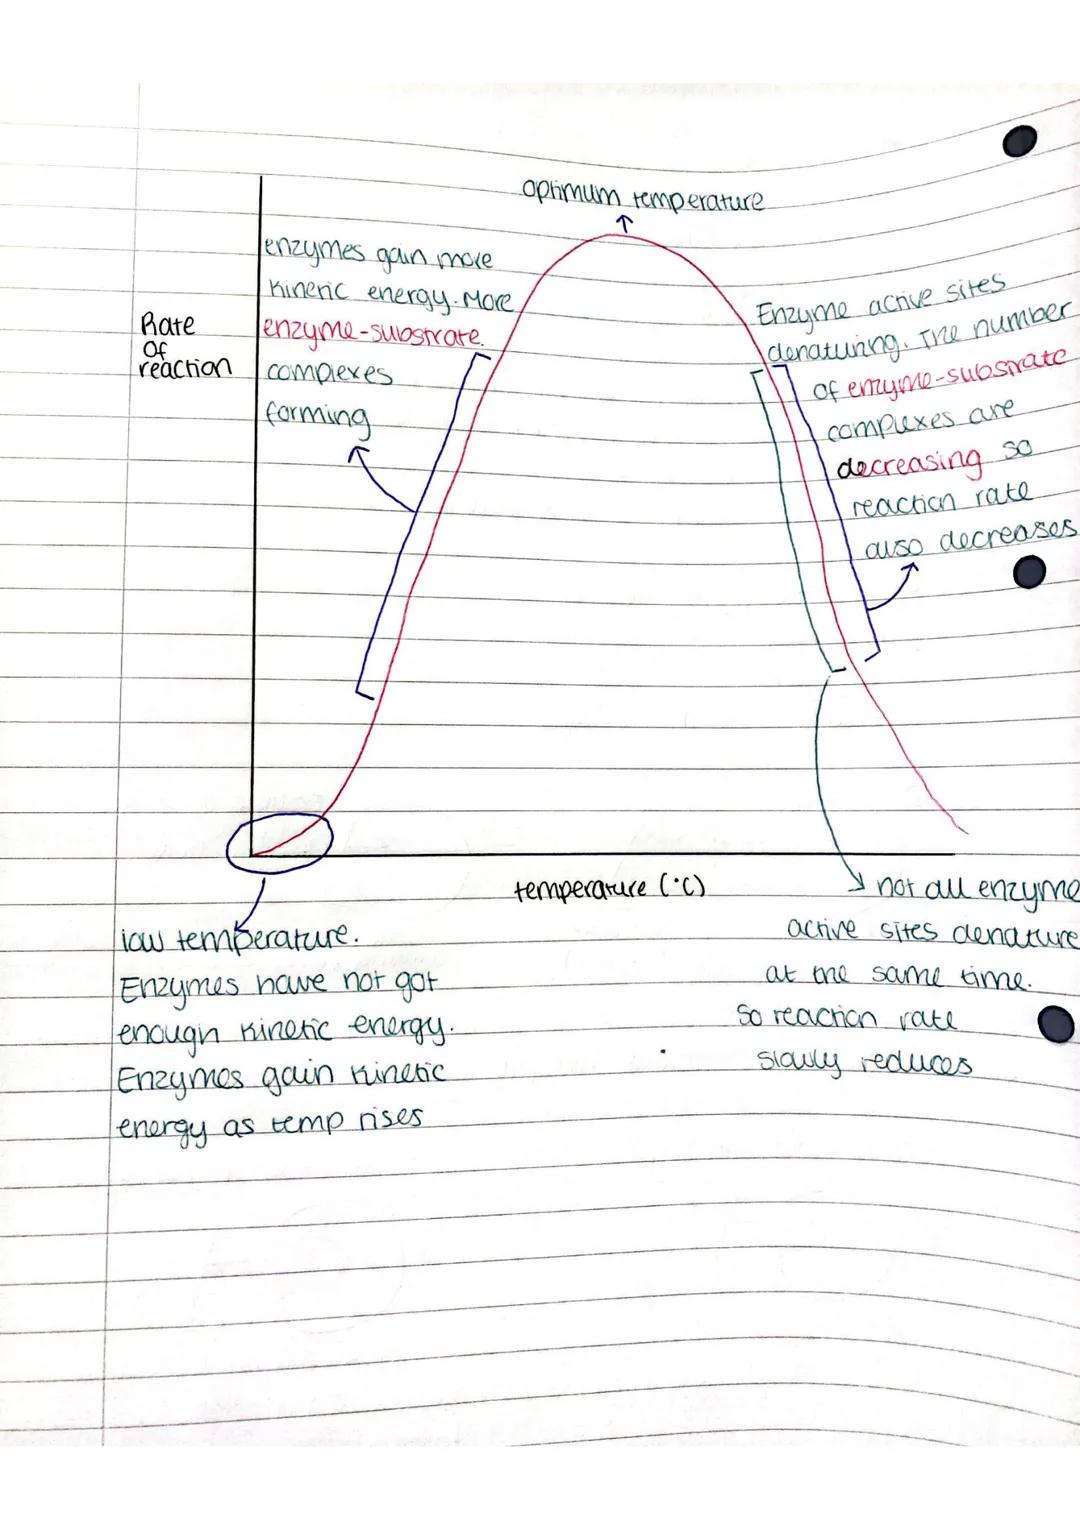 optimum temperature
enzymes gain more
kinetic energy. More
enzyme-substrate
complexes
forming
Rate
of
reaction
Enzyme active sites
denaturing. The number
of enzyme-substrate
complexes are
decreasing so
reaction rate
also decreases
temperature (°C)
low temperature.
Enzymes have not got
enough kinetic energy.
Enzymes gain kinetic
energy as temp rises
not all enzyme
active sites denature
at the same time.
So reaction rate
slowly reduces